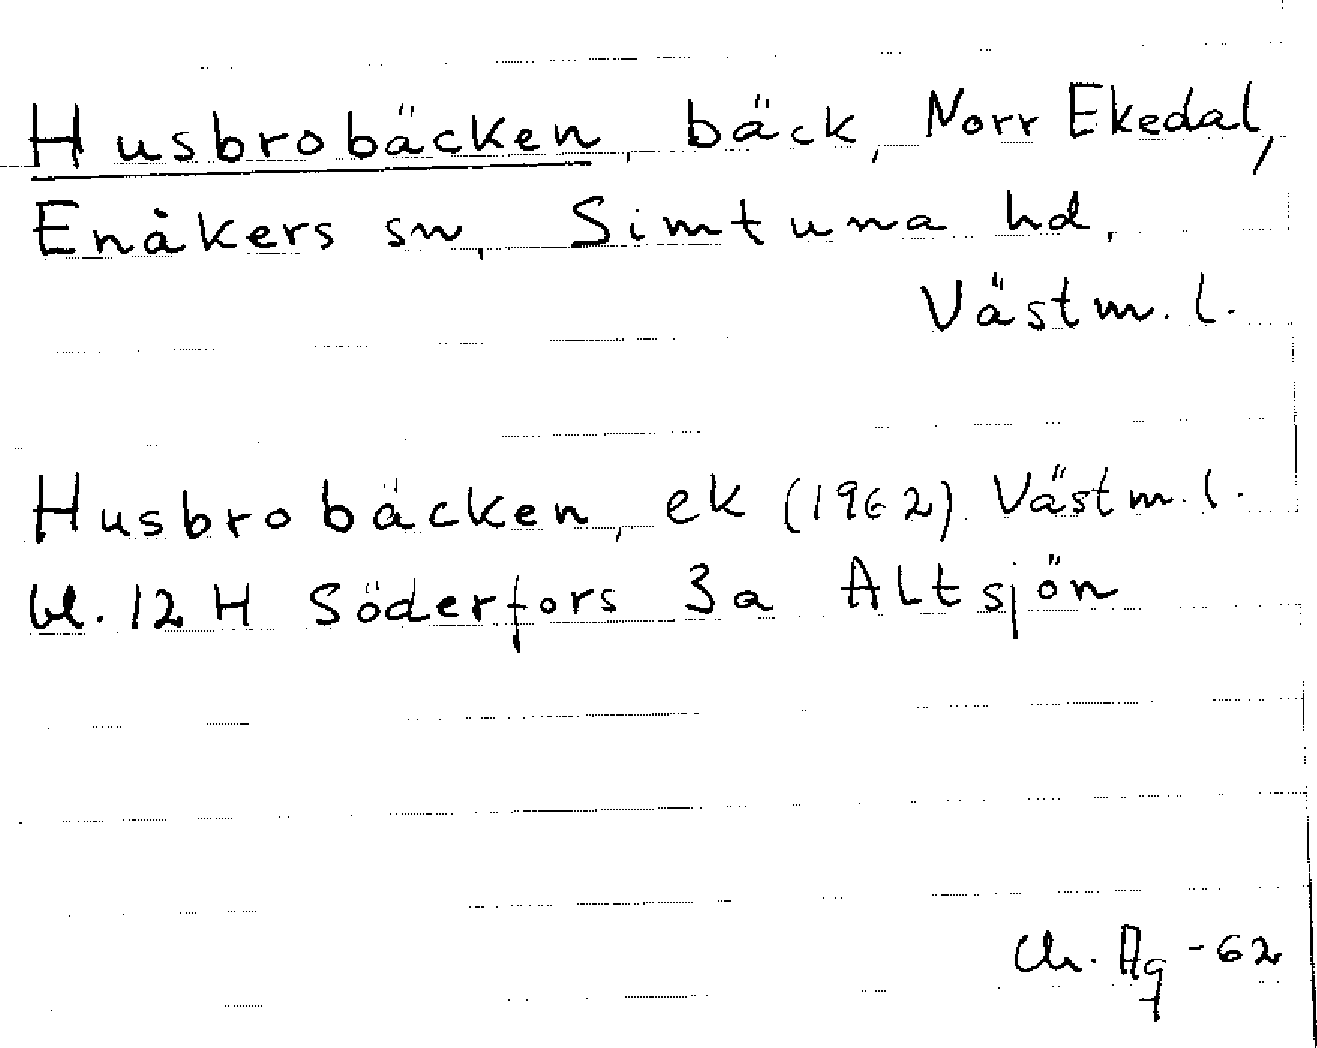 Husbrobäcken, bäck, Norr Ekedal,
Enåkers sn, Simtuna hd,
Västm. l.
Husbrobäcken, ek (1962) Västm. l.
bl. 12 H Söderfors 3a Altsjön
Ch. Ag -62